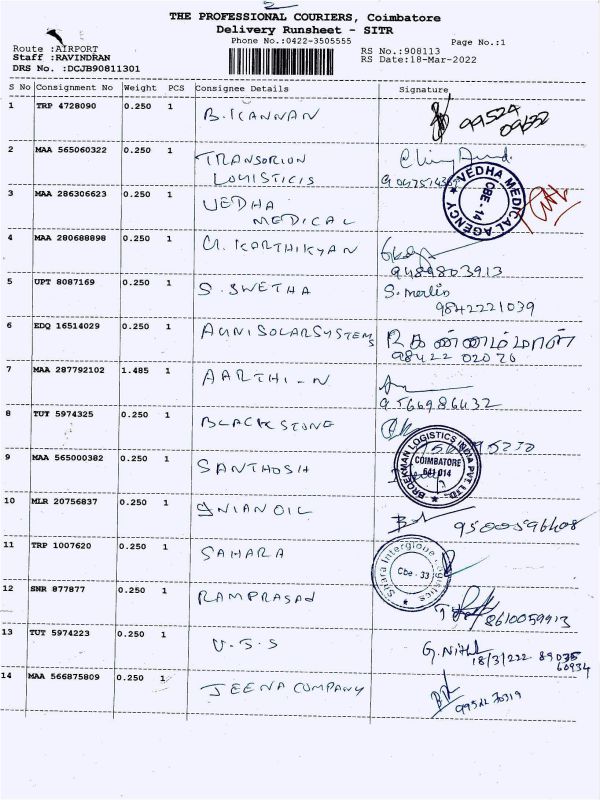 2
THE PROFESSIONAL COURIERS, Coimbatore
Delivery Runsheet - SITR
Phone No.:0422-3505555
Page No.:1
Route :AIRPORT
Staff :RAVINDRAN
DRS No. :DCJB90811301
RS No.:908113
RS Date:18-Mar-2022
S No Consignment No Weight PCS Consignee Details Signature
1 TRP 4728090 0.250 1 B. KANNAN
99524
09632
2 MAA 565060322 0.250 1 TRANSORION
LOGISTICIS
3 MAA 286306623 0.250 1 VEDHA
MEDICAL
VEDHA MEDICAL AGENCY
CBE-14
4 MAA 280688898 0.250 1 G. KARTHIKYAN
9489803913
5 UPT 8087169 0.250 1 S. SWETHA
S. Merlin
9842221039
6 EDQ 16514029 0.250 1 AGNISOLARSYSTEMS
R கண்ணம்மாள்
98422 02020
7 MAA 287792102 1.485 1 AARTHI - N
9566986432
8 TUT 5974325 0.250 1 BLACKSTONE
9 MAA 565000382 0.250 1 SANTHOSH
BROEKMAN LOGISTICS INDIA PVT. LTD.
COIMBATORE
641 014
10 MLR 20756837 0.250 1 INIAN OIL
9500596408
11 TRP 1007620 0.250 1 SAHARA
Sitara Interglobe Logistics
Cbe - 33
12 SNR 877877 0.250 1 RAMPRASAd
8610059913
13 TUT 5974223 0.250 1 V.S.S
G. Nithi
18/3/222 89035
60934
14 MAA 566875809 0.250 1 JEENA COMPANY